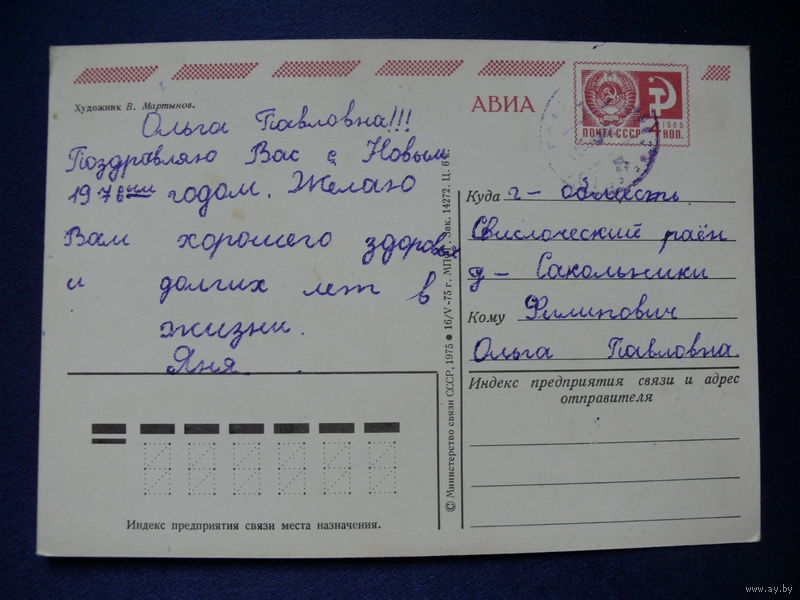 Художник В. Мартынов.
Ольга Павловна!!!
Поздравляю Вас с Новым
1976ым годом. Желаю
Вам хорошего здоровья
и долгих лет в
жизни.
Яня
Индекс предприятия связи места назначения.
© Министерство связи СССР, 1975 ● 16/V-75 г. Зак. 14272. Ц. 6 к.
АВИА
ПОЧТА СССР
1966
КОП.
Куда г- область
Свислоческий раён
д- Сакольники
Кому Филипович
Ольга Павловна.
Индекс предприятия связи и адрес
отправителя
www.ay.by